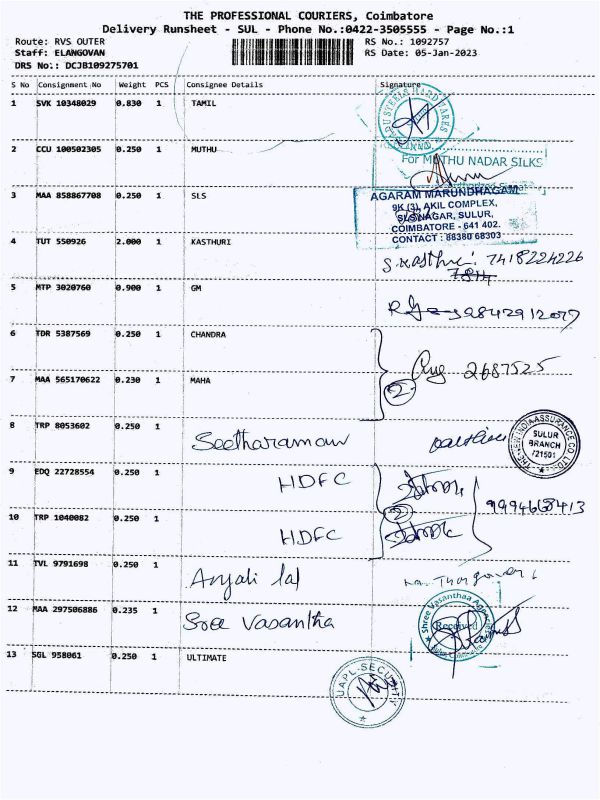 THE PROFESSIONAL COURIERS, Coimbatore
Delivery Runsheet - SUL - Phone No.:0422-3505555 - Page No.:1
Route: RVS OUTER
RS No.: 1092757
Staff: ELANGOVAN
RS Date: 05-Jan-2023
DRS No.: DCJB109275701
S No Consignment No Weight PCS Consignee Details Signature
1 SVK 10348029 0.830 1 TAMIL
2 CCU 100502305 0.250 1 MUTHU
For MUTHU NADAR SILKS
3 MAA 858867708 0.250 1 SLS
AGARAM MARUNDHAGAM
9K (3), AKIL COMPLEX,
SLS NAGAR, SULUR,
COIMBATORE - 641 402.
CONTACT : 88380 68303
4 TUT 550926 2.000 1 KASTHURI
S. Kasthuri 7418224226
5 MTP 3020760 0.900 1 GM
9842912077
6 TDR 5387569 0.250 1 CHANDRA
2687525
7 MAA 565170622 0.230 1 MAHA
2
8 TRP 8053602 0.250 1 Seetharaman
THE NEW INDIA ASSURANCE CO. LTD.
SULUR
BRANCH
721501
9 EDQ 22728554 0.250 1 HDFC
2
9994668413
10 TRP 1040082 0.250 1 HDFC
11 TVL 9791698 0.250 1 Anjali lal
12 MAA 297506886 0.235 1 Sree Vasantha
Shree Vasanthaa
Received
13 SGL 958061 0.250 1 ULTIMATE
UAPL SECURITY